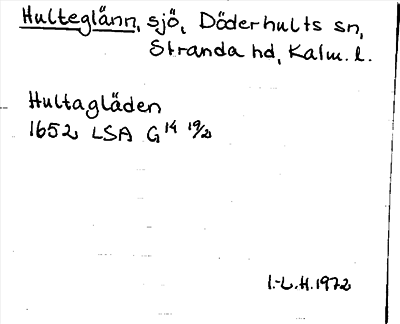 Hulteglänn, sjö, Döderhults sn,
Stranda hd, Kalm. l.
Hultagläden
1652 LSA G 14 19/2
I.-L.H.1972